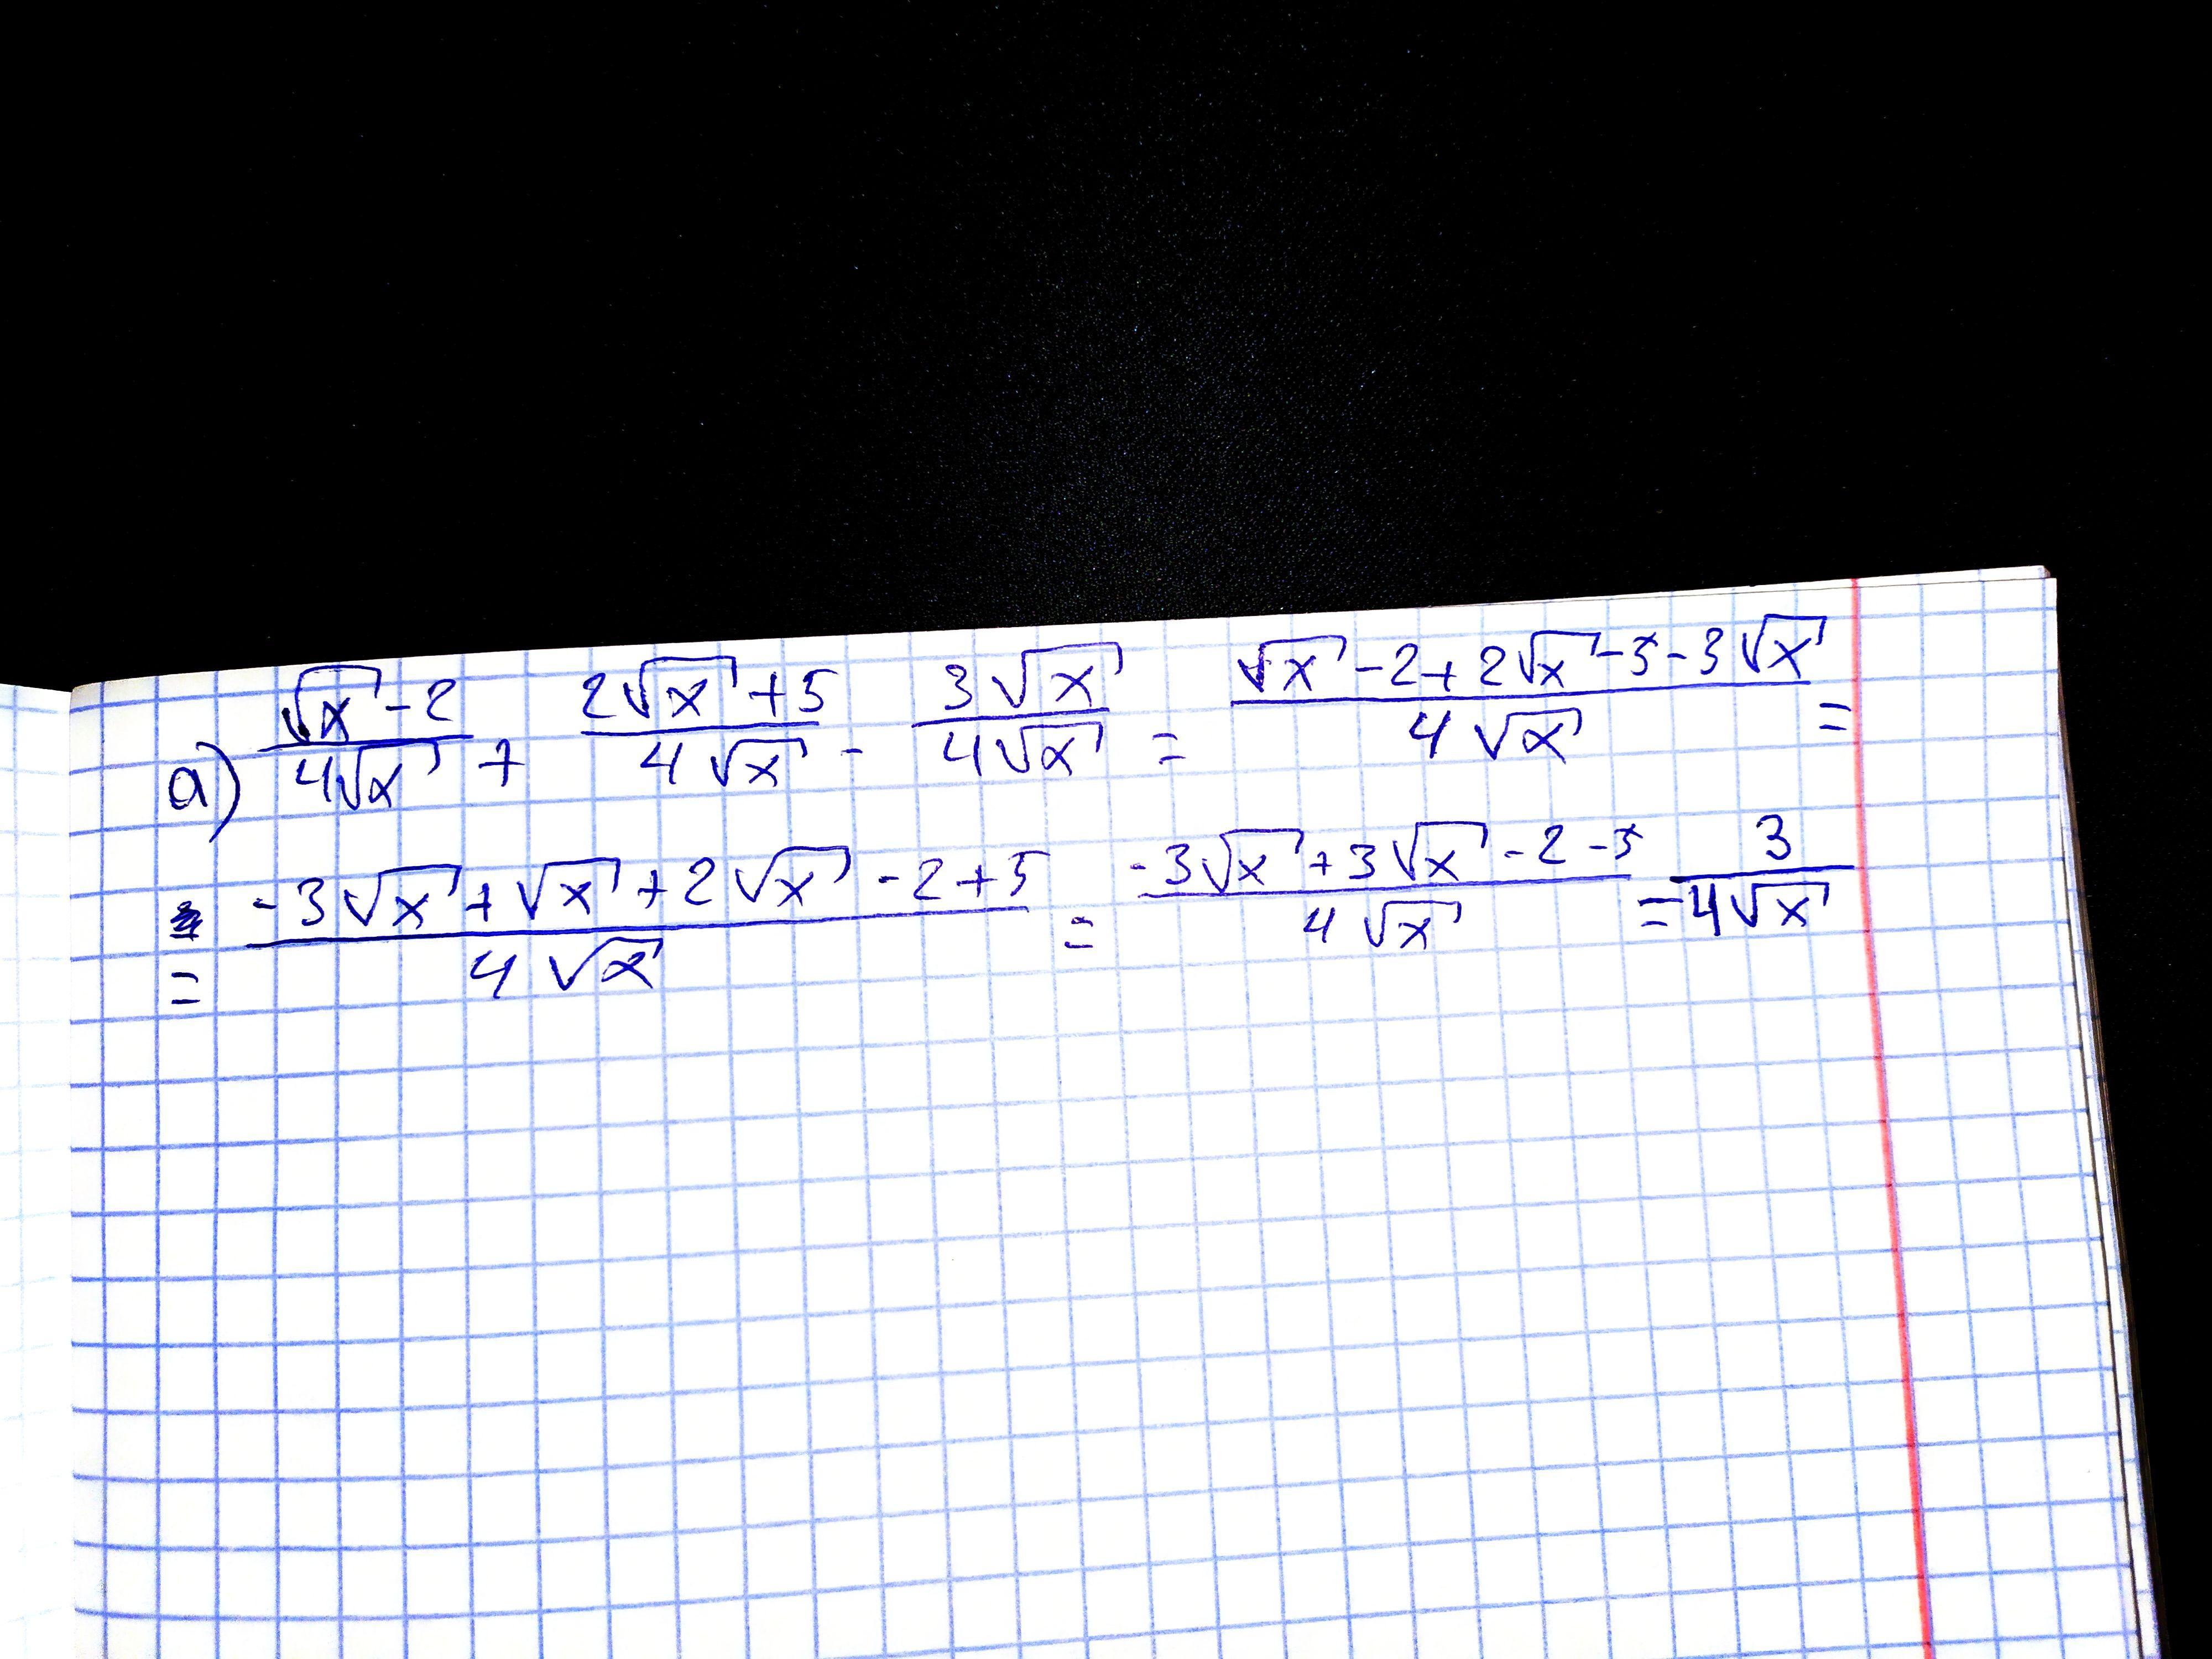 a) (√x - 2)/(4√x) + (2√x + 5)/(4√x) - (3√x)/(4√x) = (√x - 2 + 2√x - 5 - 3√x)/(4√x) =
= (-3√x + √x + 2√x - 2 + 5)/(4√x) = (-3√x + 3√x - 2 - 5)/(4√x) = 3/(4√x)